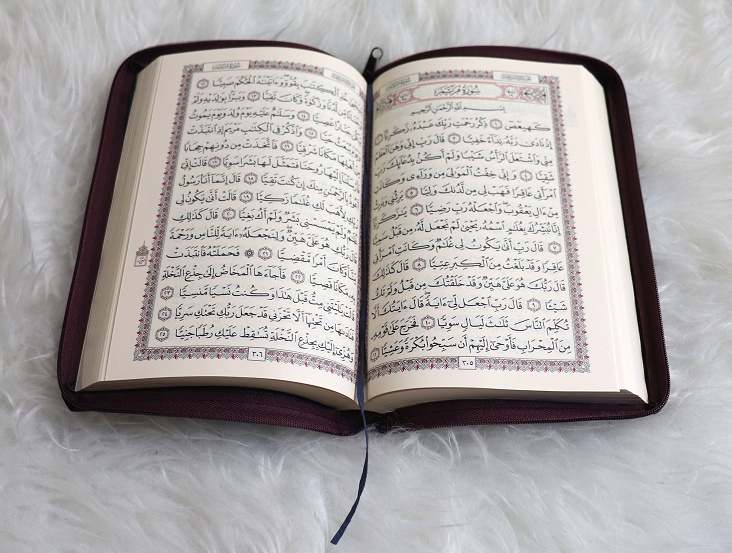 سُورَةُ مَرْيَمَ
سُورَةُ مَرْيَمَ
بِسْمِ ٱللَّهِ ٱلرَّحْمَٰنِ ٱلرَّحِيمِ
كٓهيعٓصٓ ١ ذِكْرُ رَحْمَتِ رَبِّكَ عَبْدَهُۥ زَكَرِيَّآ ٢
إِذْ نَادَىٰ رَبَّهُۥ نِدَآءً خَفِيًّا ٣ قَالَ رَبِّ إِنِّي وَهَنَ ٱلْعَظْمُ
مِنِّي وَٱشْتَعَلَ ٱلرَّأْسُ شَيْبًا وَلَمْ أَكُنۢ بِدُعَآئِكَ رَبِّ
شَقِيًّا ٤ وَإِنِّي خِفْتُ ٱلْمَوَٰلِيَ مِن وَرَآءِي وَكَانَتِ
ٱمْرَأَتِي عَاقِرًا فَهَبْ لِي مِن لَّدُنكَ وَلِيًّا ٥ يَرِثُنِي وَيَرِثُ
مِنْ ءَالِ يَعْقُوبَ ۖ وَٱجْعَلْهُ رَبِّ رَضِيًّا ٦ يَٰزَكَرِيَّآ
إِنَّا نُبَشِّرُكَ بِغُلَٰمٍ ٱسْمُهُۥ يَحْيَىٰ لَمْ نَجْعَل لَّهُۥ مِن قَبْلُ سَمِيًّا
٧ قَالَ رَبِّ أَنَّىٰ يَكُونُ لِي غُلَٰمٌ وَكَانَتِ ٱمْرَأَتِي
عَاقِرًا وَقَدْ بَلَغْتُ مِنَ ٱلْكِبَرِ عِتِيًّا ٨ قَالَ كَذَٰلِكَ
قَالَ رَبُّكَ هُوَ عَلَيَّ هَيِّنٌ وَقَدْ خَلَقْتُكَ مِن قَبْلُ وَلَمْ تَكُ
شَيْـًٔا ٩ قَالَ رَبِّ ٱجْعَل لِّيٓ ءَايَةً ۚ قَالَ ءَايَتُكَ أَلَّا
تُكَلِّمَ ٱلنَّاسَ ثَلَٰثَ لَيَالٍ سَوِيًّا ١٠ فَخَرَجَ عَلَىٰ قَوْمِهِۦ
مِنَ ٱلْمِحْرَابِ فَأَوْحَىٰٓ إِلَيْهِمْ أَن سَبِّحُوا۟ بُكْرَةً وَعَشِيًّا ١١
٣٠٥
سُورَةُ مَرْيَمَ
ٱلْكِتَٰبَ بِقُوَّةٍ ۖ وَءَاتَيْنَٰهُ ٱلْحُكْمَ صَبِيًّا ١٢
مِّن لَّدُنَّا وَزَكَوٰةً ۖ وَكَانَ تَقِيًّا ١٣ وَبَرًّۢا بِوَٰلِدَيْهِ وَلَمْ
جَبَّارًا عَصِيًّا ١٤ وَسَلَٰمٌ عَلَيْهِ يَوْمَ وُلِدَ وَيَوْمَ يَمُوتُ
١٥ وَٱذْكُرْ فِي ٱلْكِتَٰبِ مَرْيَمَ إِذِ ٱنتَبَذَتْ
مَكَانًا شَرْقِيًّا ١٦ فَٱتَّخَذَتْ مِن دُونِهِمْ حِجَابًا
إِلَيْهَا رُوحَنَا فَتَمَثَّلَ لَهَا بَشَرًا سَوِيًّا ١٧ قَالَتْ إِنِّيٓ
بِٱلرَّحْمَٰنِ مِنكَ إِن كُنتَ تَقِيًّا ١٨ قَالَ إِنَّمَآ أَنَا۠ رَسُولُ
رَبِّكِ لِأَهَبَ لَكِ غُلَٰمًا زَكِيًّا ١٩ قَالَتْ أَنَّىٰ يَكُونُ لِي
وَلَمْ يَمْسَسْنِي بَشَرٌ وَلَمْ أَكُ بَغِيًّا ٢٠ قَالَ كَذَٰلِكِ
قَالَ رَبُّكِ هُوَ عَلَيَّ هَيِّنٌ ۖ وَلِنَجْعَلَهُۥٓ ءَايَةً لِّلنَّاسِ وَرَحْمَةً
مِّنَّا ۚ وَكَانَ أَمْرًا مَّقْضِيًّا ٢١ فَحَمَلَتْهُ فَٱنتَبَذَتْ
مَكَانًا قَصِيًّا ٢٢ فَأَجَآءَهَا ٱلْمَخَاضُ إِلَىٰ جِذْعِ ٱلنَّخْلَةِ
يَٰلَيْتَنِي مِتُّ قَبْلَ هَٰذَا وَكُنتُ نَسْيًا مَّنسِيًّا ٢٣
فَنَادَىٰهَا مِن تَحْتِهَآ أَلَّا تَحْزَنِي قَدْ جَعَلَ رَبُّكِ تَحْتَكِ سَرِيًّا ٢٤
وَهُزِّيٓ إِلَيْكِ بِجِذْعِ ٱلنَّخْلَةِ تُسَٰقِطْ عَلَيْكِ رُطَبًا جَنِيًّا ٢٥
٣٠٦